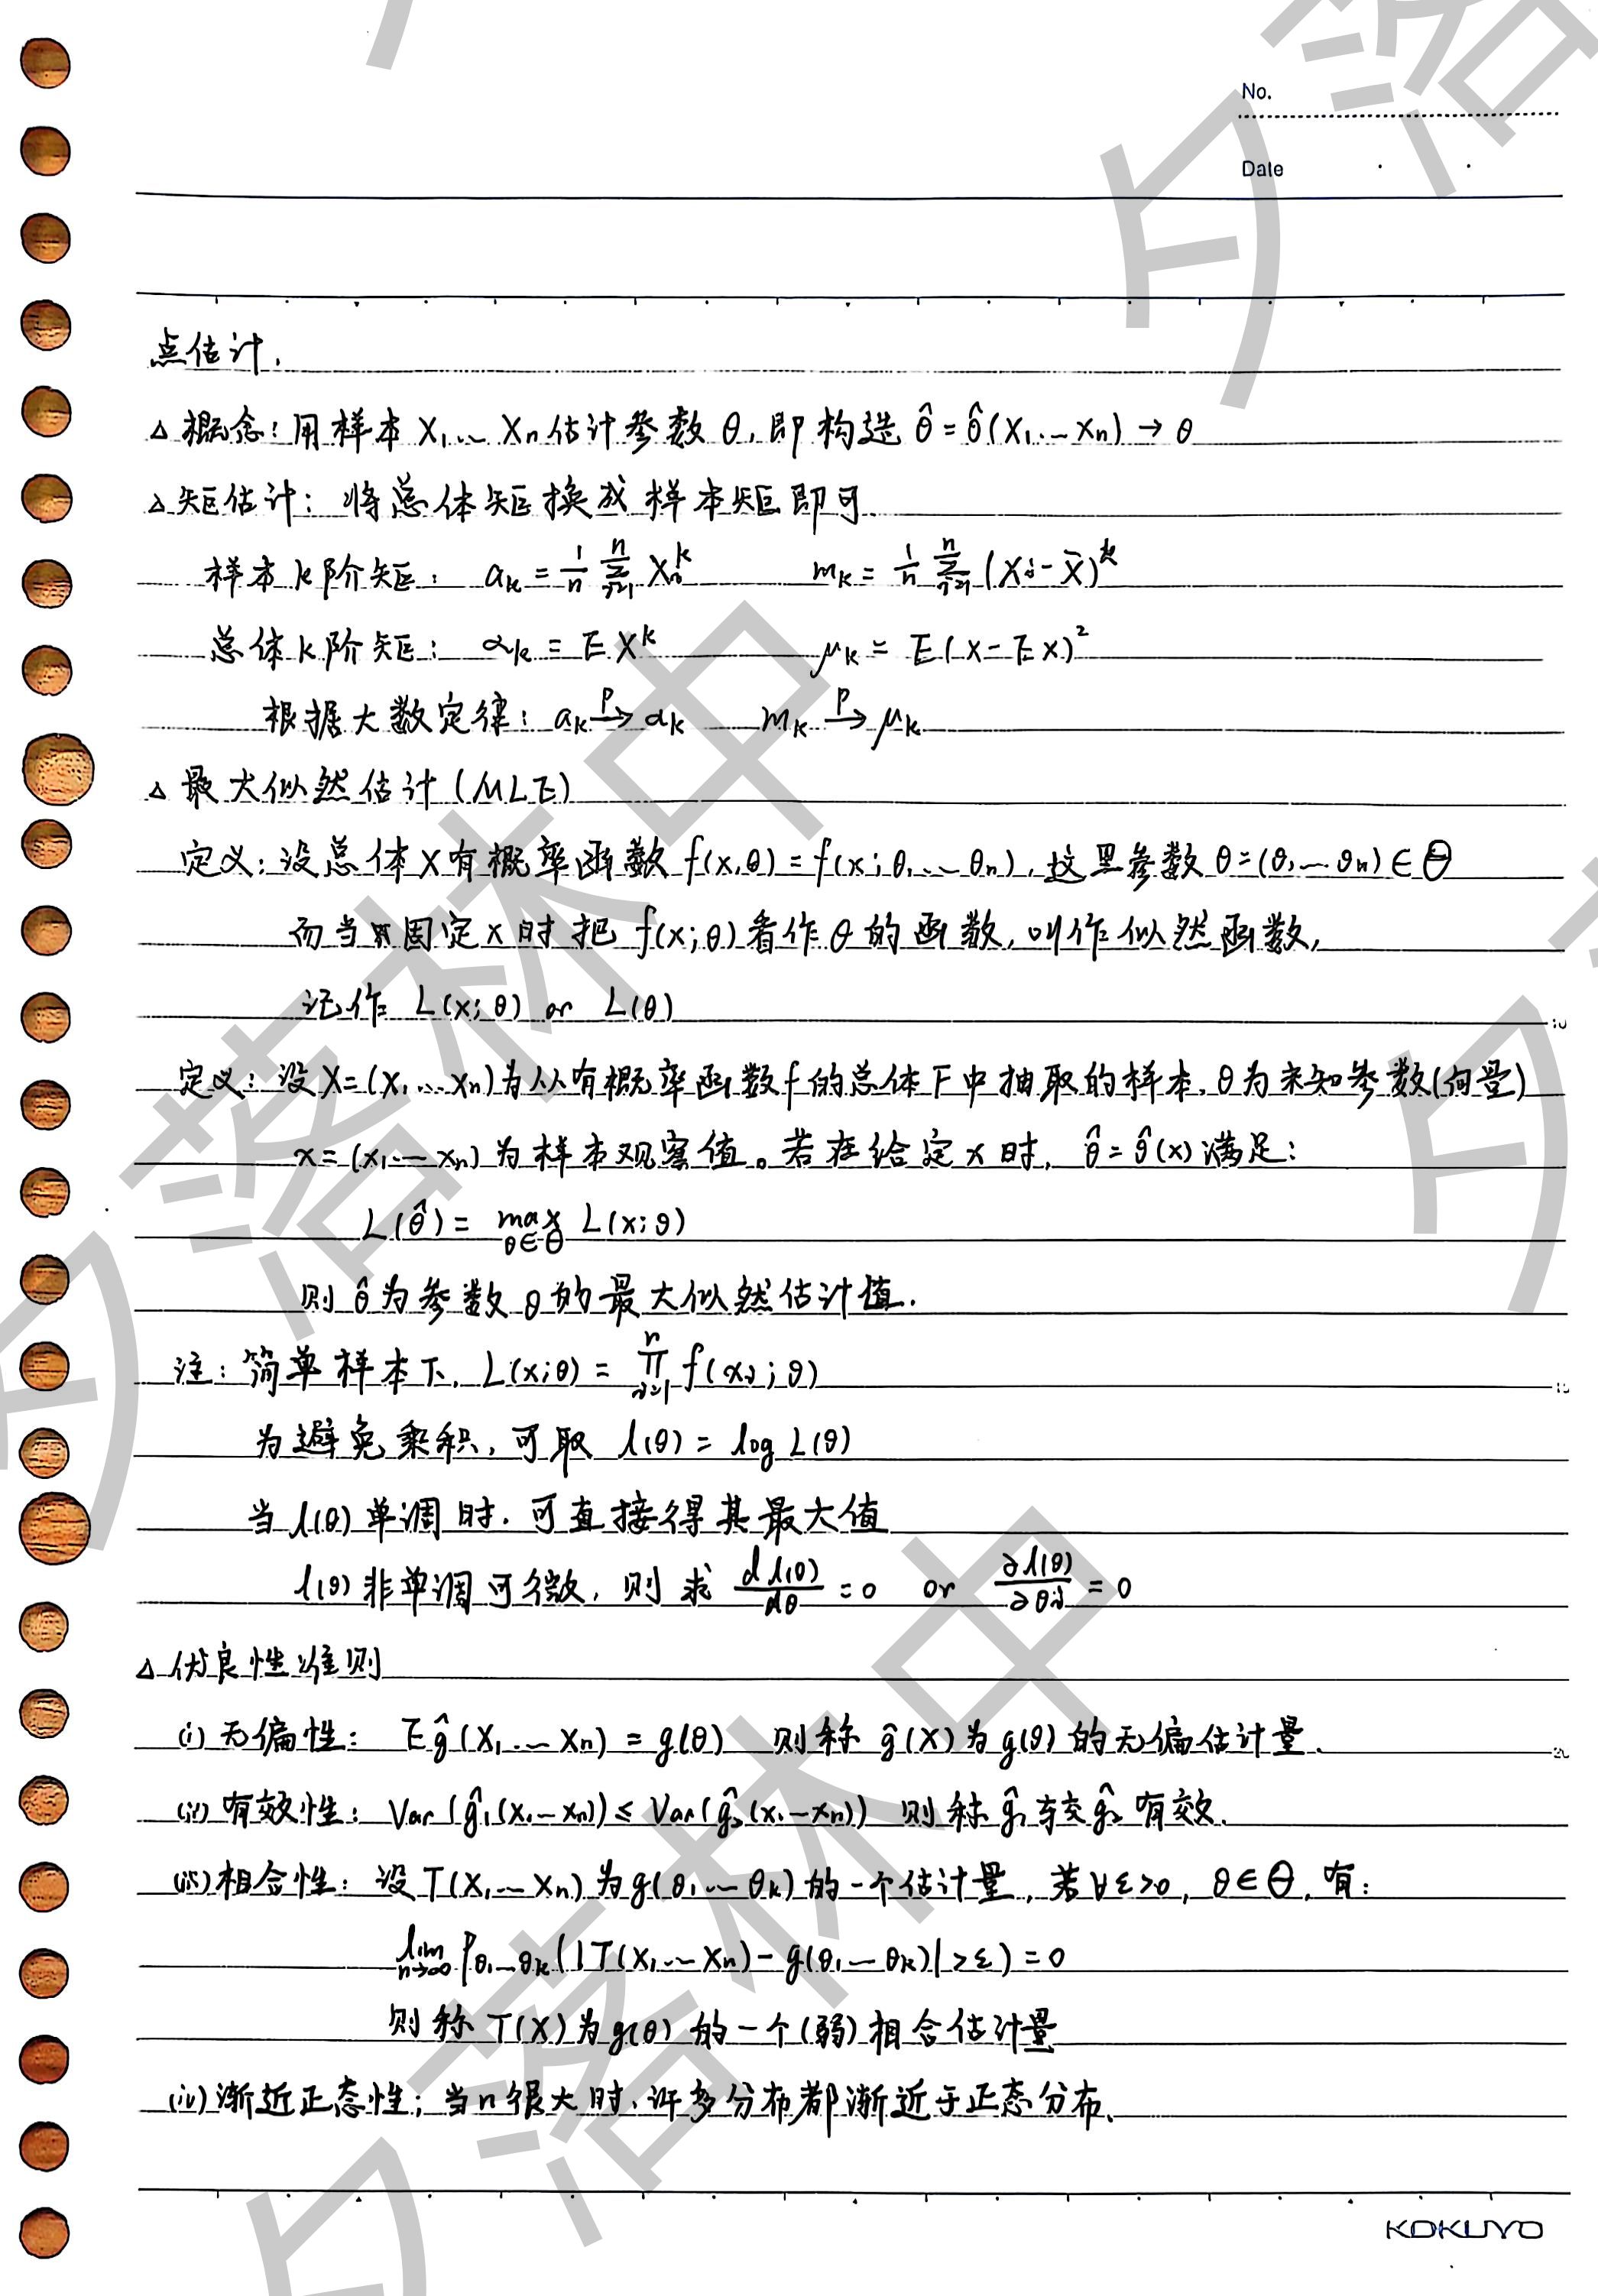 No.
Date
点估计.
△ 概念: 用样本 X₁...Xₙ 估计参数 θ, 即构造 θ̂ = θ̂(X₁...Xₙ) → θ
△ 矩估计: 将总体矩换成样本矩即可.
样本k阶矩: aₖ = 1/n Σᵢ₌₁ⁿ Xᵢᵏ  mₖ = 1/n Σᵢ₌₁ⁿ (Xᵢ - X̄)ᵏ
总体k阶矩: αₖ = EXᵏ  μₖ = E(X - EX)²
根据大数定律: aₖ →ᴾ αₖ  mₖ →ᴾ μₖ
△ 最大似然估计 (MLE)
定义: 设总体X有概率函数 f(x,θ) = f(x;θ₁...θₙ), 这里参数 θ=(θ₁...θₙ) ∈ Θ
而当固定x时把 f(x;θ) 看作 θ 的函数, 叫作似然函数,
记作 L(x;θ) or L(θ)
定义: 设X=(X₁...Xₙ)为从有概率函数f的总体F中抽取的样本, θ为未知参数(向量)
x=(x₁...xₙ) 为样本观察值。若在给定x时, θ̂ = θ̂(x) 满足:
L(θ̂) = max_{θ∈Θ} L(x;θ)
则 θ̂ 为参数 θ 的最大似然估计值.
注: 简单样本下, L(x;θ) = ∏ᵢ₌₁ⁿ f(xᵢ;θ)
为避免乘积, 可取 l(θ) = log L(θ)
当 l(θ) 单调时. 可直接得其最大值
l(θ) 非单调可微, 则求 dl(θ)/dθ = 0 or ∂l(θ)/∂θᵢ = 0
△ 优良性准则
(i) 无偏性: Eĝ(X₁...Xₙ) = g(θ) 则称 ĝ(X) 为 g(θ) 的无偏估计量.
(ii) 有效性: Var(ĝ₁(X₁...Xₙ)) ≤ Var(ĝ₂(X₁...Xₙ)) 则称 ĝ₁ 较 ĝ₂ 有效.
(iii) 相合性: 设 T(X₁...Xₙ) 为 g(θ₁...θₖ) 的一个估计量, 若 ∀ε>0, θ∈Θ, 有:
lim_{n→∞} P_{θ₁...θₖ}(|T(X₁...Xₙ) - g(θ₁...θₖ)| > ε) = 0
则称 T(X) 为 g(θ) 的一个(弱)相合估计量
(iv) 渐近正态性; 当n很大时, 许多分布都渐近于正态分布.
KOKUYO
夕落林中
夕落林中